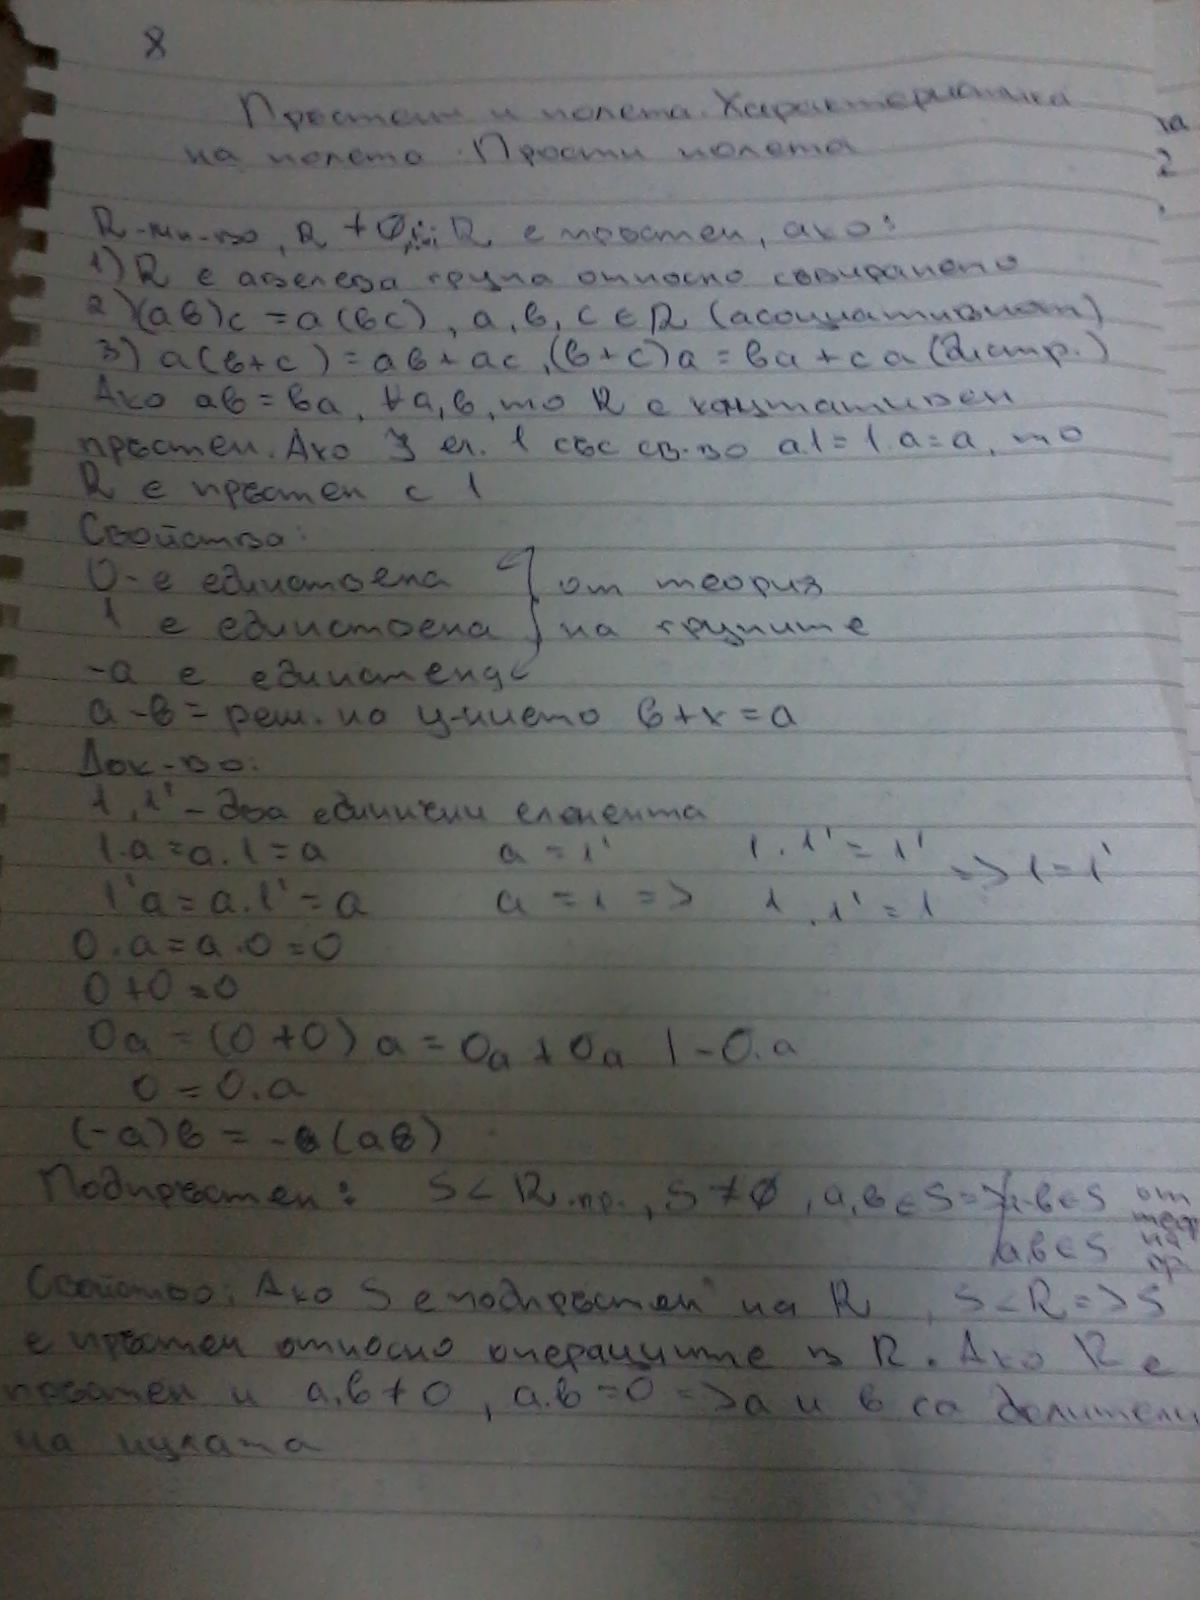 8
Пръстени и полета. Характеристика
на полето. Прости полета
R-мн-во, R ≠ Ø, R е пръстен, ако:
1) R е абелева група относно събирането
2) (ab)c = a(bc), a, b, c ∈ R (асоциативност)
3) a(b+c) = ab + ac, (b+c)a = ba + ca (дистр.)
Ако ab = ba, ∀ a, b, то R е комутативен
пръстен. Ако ∃ ел. 1 със св-во a.1 = 1.a = a, то
R е пръстен с 1
Свойства:
0 - е единствена } от теория
1 е единствена } на групите
-a е единствен
a - b = реш. на у-нието b + x = a
Док-во:
1, 1' - два единични елемента
1.a = a.1 = a a = 1' 1.1' = 1' => 1 = 1'
1'a = a.1' = a a = 1 => 1.1' = 1
0.a = a.0 = 0
0 + 0 = 0
0a = (0 + 0) a = 0a + 0a | - 0.a
0 = 0.a
(-a)b = -(ab)
Подпръстен: S < R пр., S ≠ Ø, a, b ∈ S => a-b ∈ S от
ab ∈ S на
Свойство: Ако S е подпръстен на R, S < R => S
е пръстен относно операциите в R. Ако R е
пръстен и a, b ≠ 0, a.b = 0 => a и b са делители
на нулата